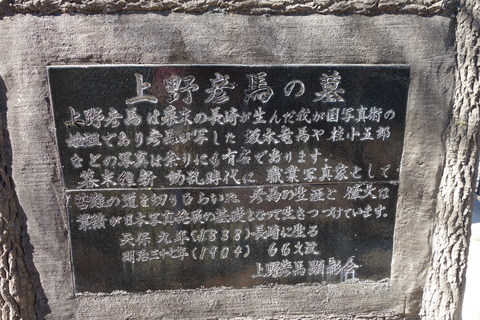 上野彦馬の墓
上野彦馬は幕末の長崎が生んだ我が国写真術の
始祖であり彦馬が写した 坂本竜馬や桂小五郎
などの写真は余りにも有名であります。
幕末維新 動乱時代に 職業写真家として
苦難の道を切りひらいた 彦馬の生涯と 偉大な
業績が日本写真 の基礎となって生きつづけています。
天保 九年(1838)長崎に生る
明治三十七年(1904) 66才没
上野彦馬 顕彰会